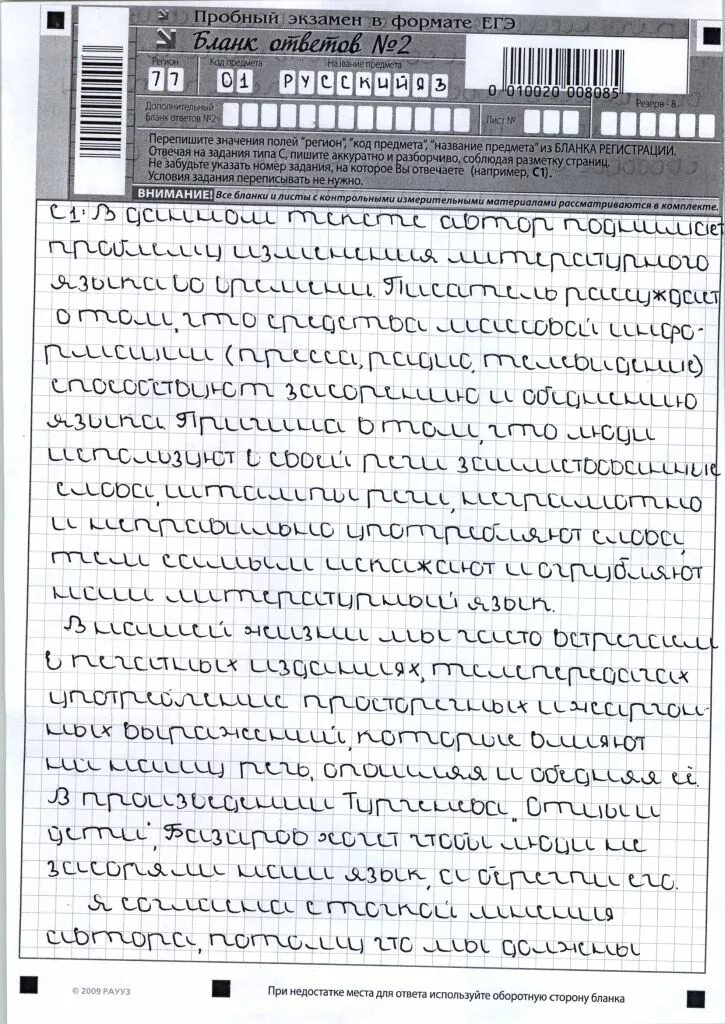 Пробный экзамен в формате ЕГЭ
Бланк ответов №2
Регион Код предмета Название предмета
77 01 РУССКИЙЯЗ
0 010020 008085
Дополнительный бланк ответов №2
Лист №
Резерв - 8
Перепишите значения полей "регион", "код предмета", "название предмета" из БЛАНКА РЕГИСТРАЦИИ.
Отвечая на задания типа С, пишите аккуратно и разборчиво, соблюдая разметку страниц.
Не забудьте указать номер задания, на которое Вы отвечаете (например, С1).
Условия задания переписывать не нужно.
ВНИМАНИЕ! Все бланки и листы с контрольными измерительными материалами рассматриваются в комплекте.
С1. В данном тексте автор поднимает
проблему изменения литературного
языка во времени. Писатель рассуждает
о том, что средства массовой инфо-
рмации (пресса, радио, телевидение)
способствуют засорению и обеднению
языка. Причина в том, что люди
используют в своей речи заимствованные
слова, штампы речи, неграмотно
и неправильно употребляют слова,
тем самым искажают и огрубляют
наш литературный язык.
В нашей жизни мы часто встречаем
в печатных изданиях, телепередачах
употребление просторечных и жаргон-
ных выражений, которые влияют
на нашу речь, опошляя и обедняя её.
В произведении Тургенева „Отцы и
дети", Базаров хочет чтобы люди не
засоряли наш язык, а берегли его.
Я согласна с точкой мнения
автора, потому что мы должны
© 2009 РАУУЗ
При недостатке места для ответа используйте оборотную сторону бланка